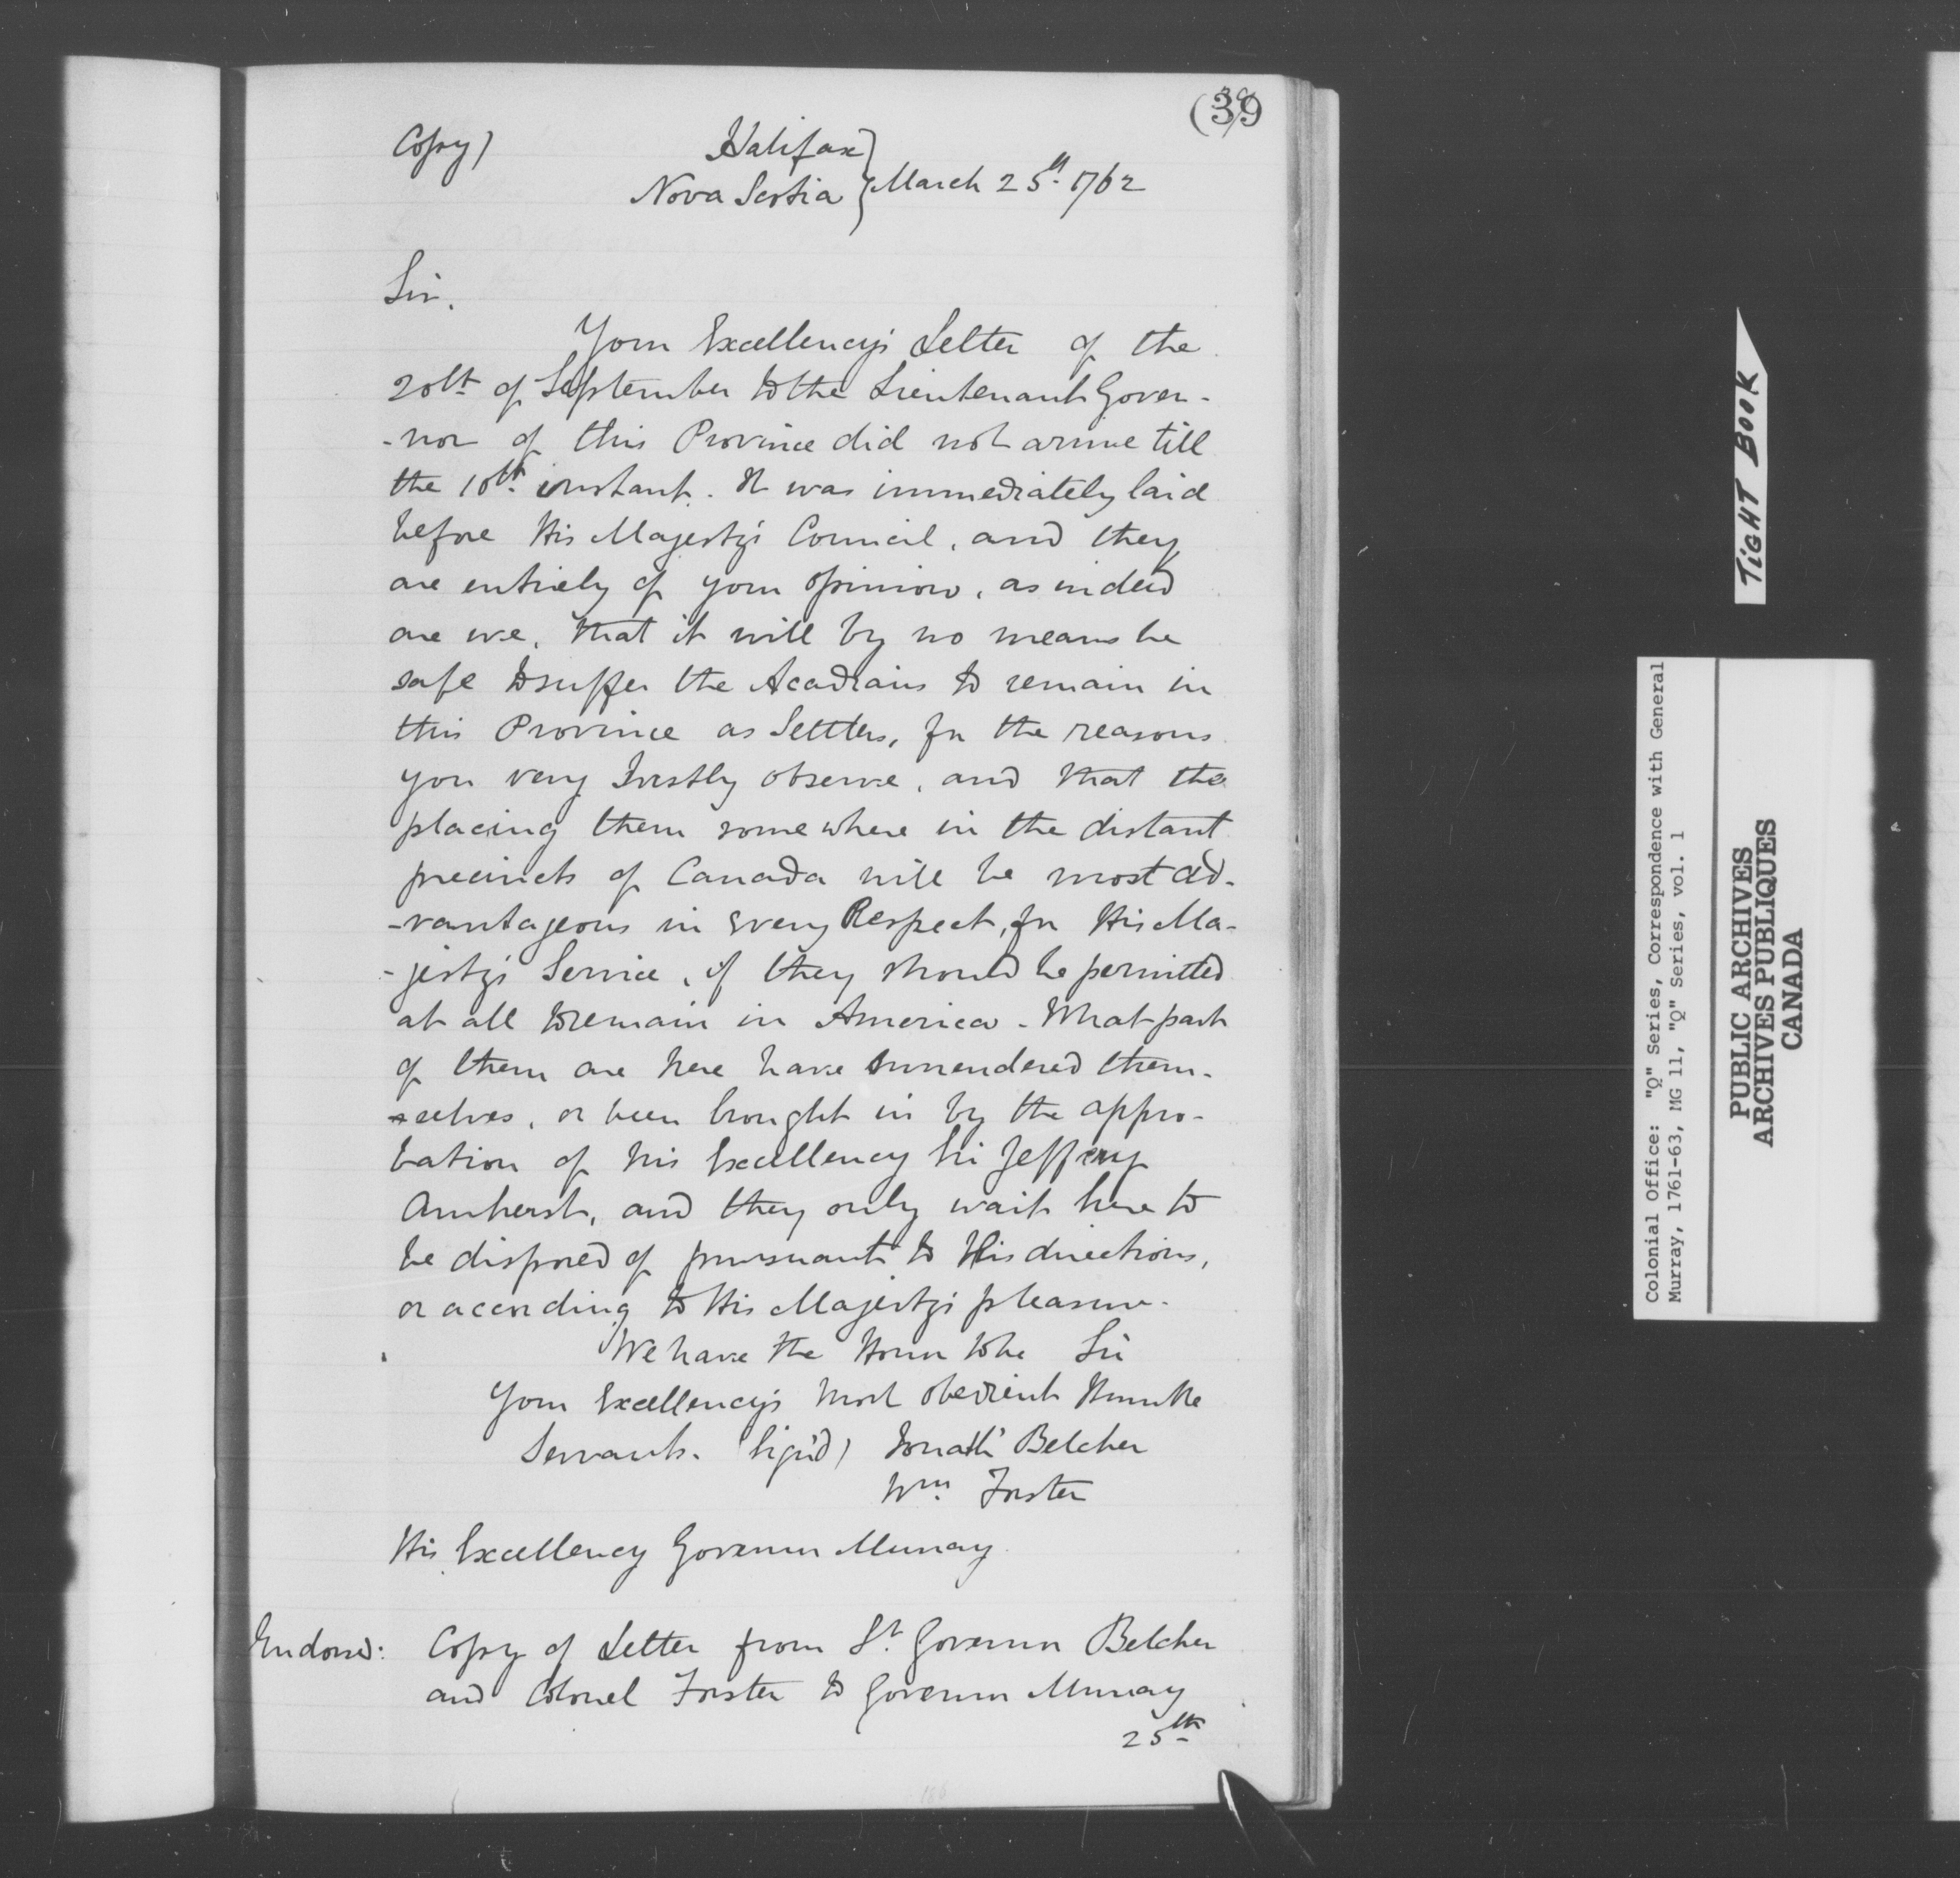 (39
Copy)
Halifax
Nova Scotia } March 25th 1762
Sir.
Your Excellency's Letter of the
20th of September to the Lieutenant Gover-
-nor of this Province did not arrive till
the 10th instant. It was immediately laid
before His Majesty's Council, and they
are entirely of your opinion, as indeed
are we, that it will by no means be
safe to suffer the Acadians to remain in
this Province as Settlers, for the reasons
you very Justly observe, and that the
placing them somewhere in the distant
precincts of Canada will be most ad-
-vantageous in Every Respect, for His Ma-
-jesty's Service, if they should be permitted
at all to remain in America. What part
of them are here have surrendered them-
-selves, or been brought in by the appro-
bation of his Excellency Sir Jeffery
Amherst, and they only wait here to
be disposed of pursuant to His directions,
or according to His Majesty's pleasure.
We have the Honor to be Sir
Your Excellency's most obedient Humble
Servants. (sign'd) Jonath' Belcher
Wm. Forster
His Excellency Governor Murray
Endorsed: Copy of Letter from Lt. Governor Belcher
and Colonel Forster to Governor Murray
25th
TIGHT BOOK
Colonial Office: "Q" Series, Correspondence with General
Murray, 1761-63, MG 11, "Q" Series, vol. 1
PUBLIC ARCHIVES
ARCHIVES PUBLIQUES
CANADA